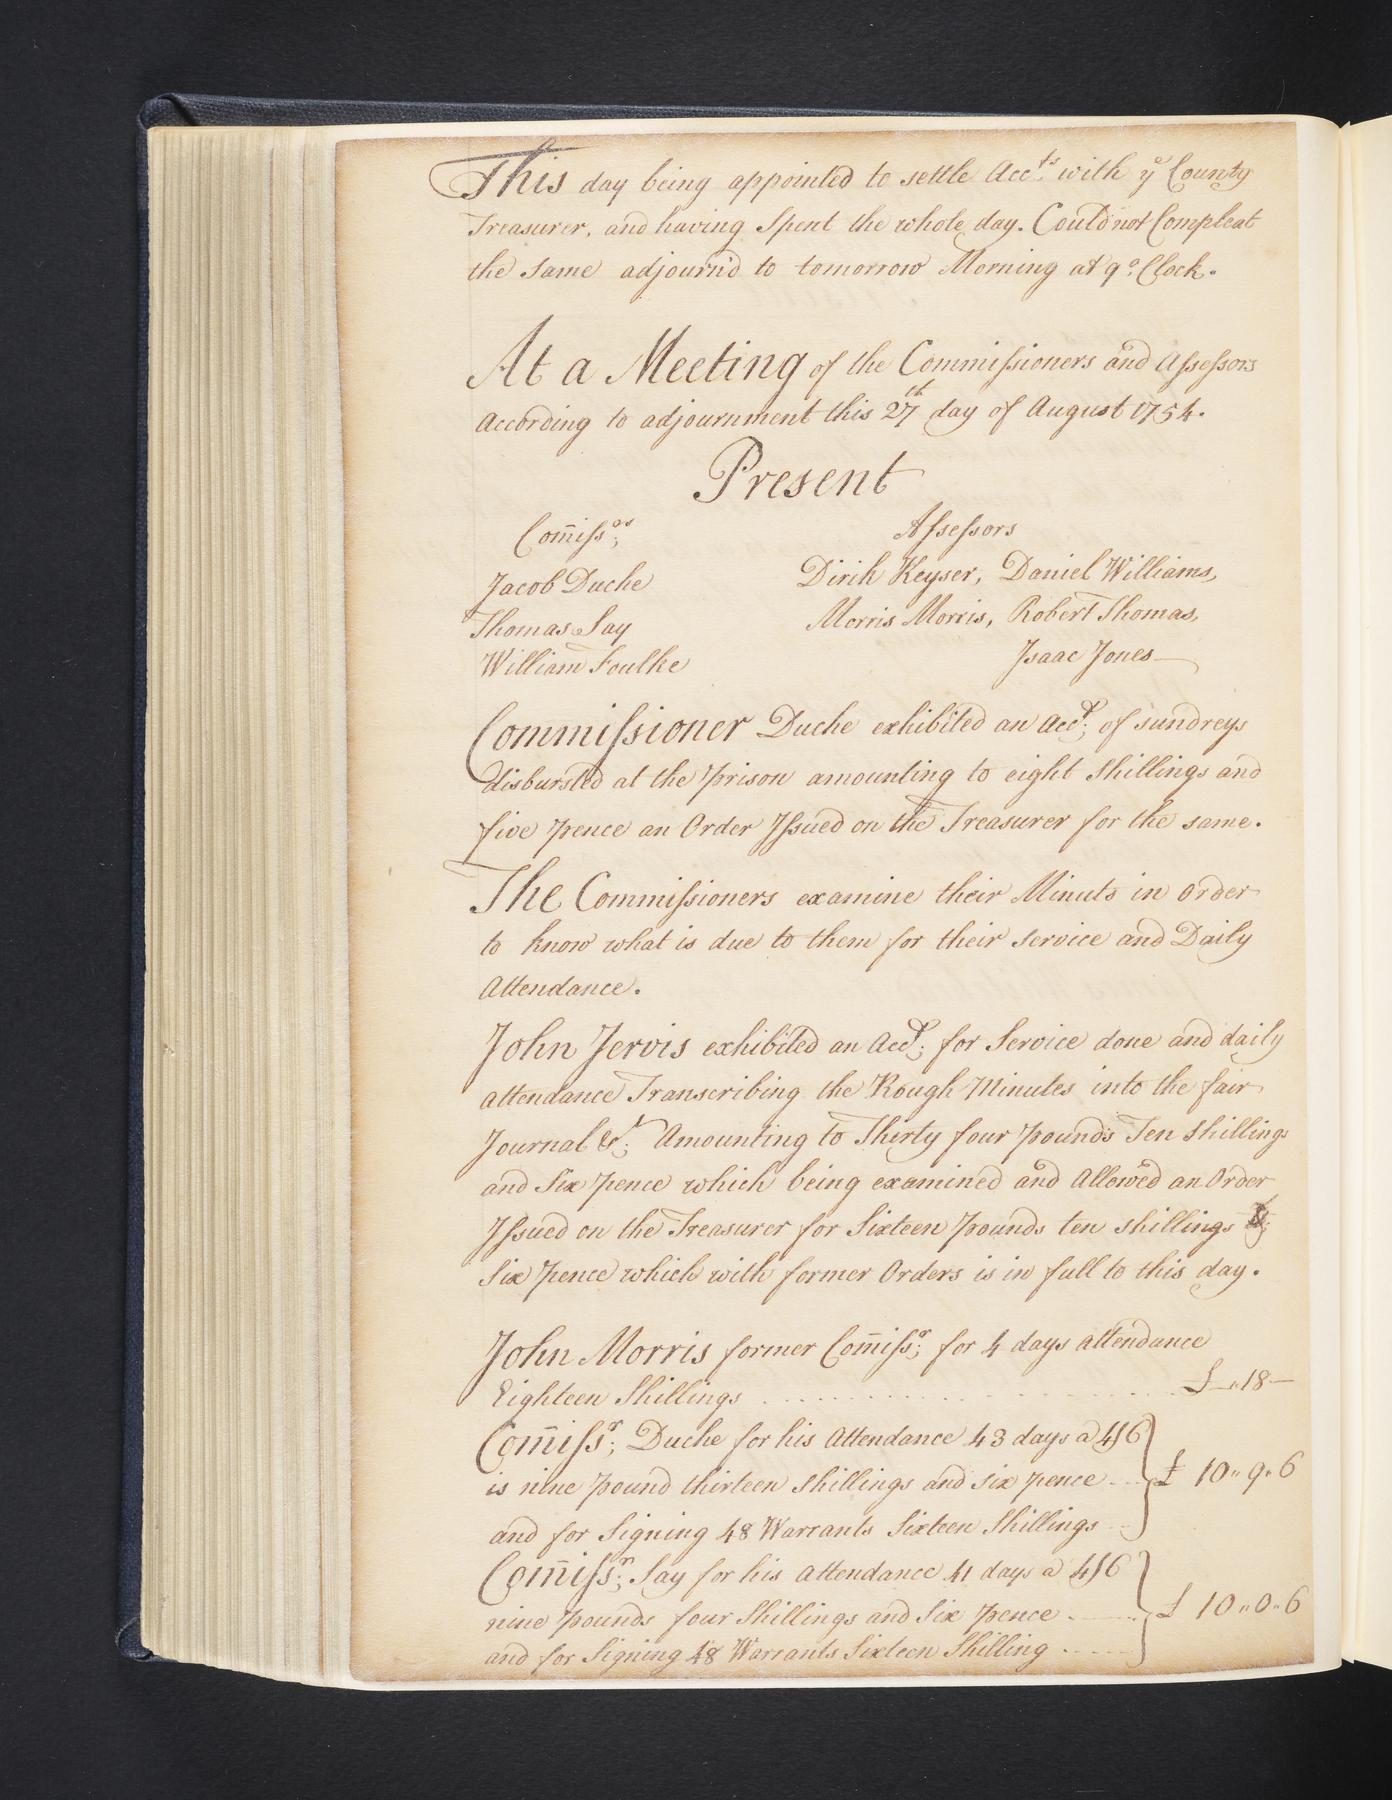 This day being appointed to settle Acc.ts with ye County
Treasurer, and having Spent the whole day. Could not Compleat
the same adjourn'd to tomorrow Morning at 9 o. Clock.
At a Meeting of the Commissioners and Assessors
According to adjournment this 27th day of August 1754.
Present
Com̄iss.rs
Assessors
Jacob Duche
Dirik Keyser, Daniel Williams,
Thomas Say
Morris Morris, Robert Thomas,
William Foulke
Isaac Jones
Commissioner Duche exhibited an Acct. of Sundreys
disbursted at the Prison amounting to eight Shillings and
five pence an Order Issued on the Treasurer for the same.
The Commissioners examine their Minuts in order
to know what is due to them for their Service and Daily
Attendance.
John Jervis exhibited an Acct. for Service done and daily
attendance Transcribing the Rough Minutes into the fair
Journal &c. Amounting to Thirty four pounds Ten Shillings
and Six pence which being examined and Allowed an Order
Issued on the Treasurer for Sixteen Pounds ten shillings &
Six pence which with former Orders is in full to this day.
John Morris former Com̄issr. for 4 days attendance
Eighteen Shillings . . . . . . . . . . £ —„18—
Com̄issr. Duche for his Attendance 43 days a 4/6
is nine pound thirteen shillings and six pence £ 10„9„6
and for Signing 48 Warrants Sixteen Shillings
Com̄issr. Say for his Attendance 41 days a 4/6
nine Pounds four Shillings and Six Pence £ 10„0„6
and for Signing 48 Warrants Sixteen Shilling